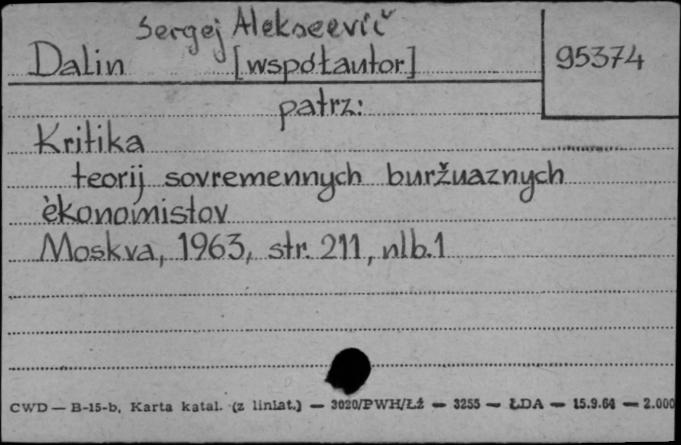 Sergej Alekseevič
Dalin [współautor] 95374
patrz:
Kritika
teorij sovremennych buržuaznych
èkonomistov
Moskva, 1963, str. 211, nlb. 1
CWD — B-15-b, Karta katal. (z liniat.) — 3020/PWH/Łź — 3255 — ŁDA — 15.9.64 — 2.000